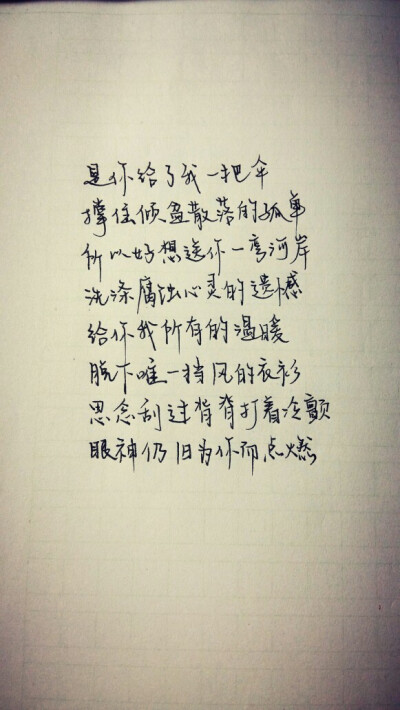 是你给了我一把伞
撑住倾盆散落的孤单
所以好想送你一弯河岸
洗涤腐蚀心灵的遗憾
给你我所有的温暖
脱下唯一挡风的衣衫
思念刮过背脊打着冷颤
眼神仍旧为你而点燃